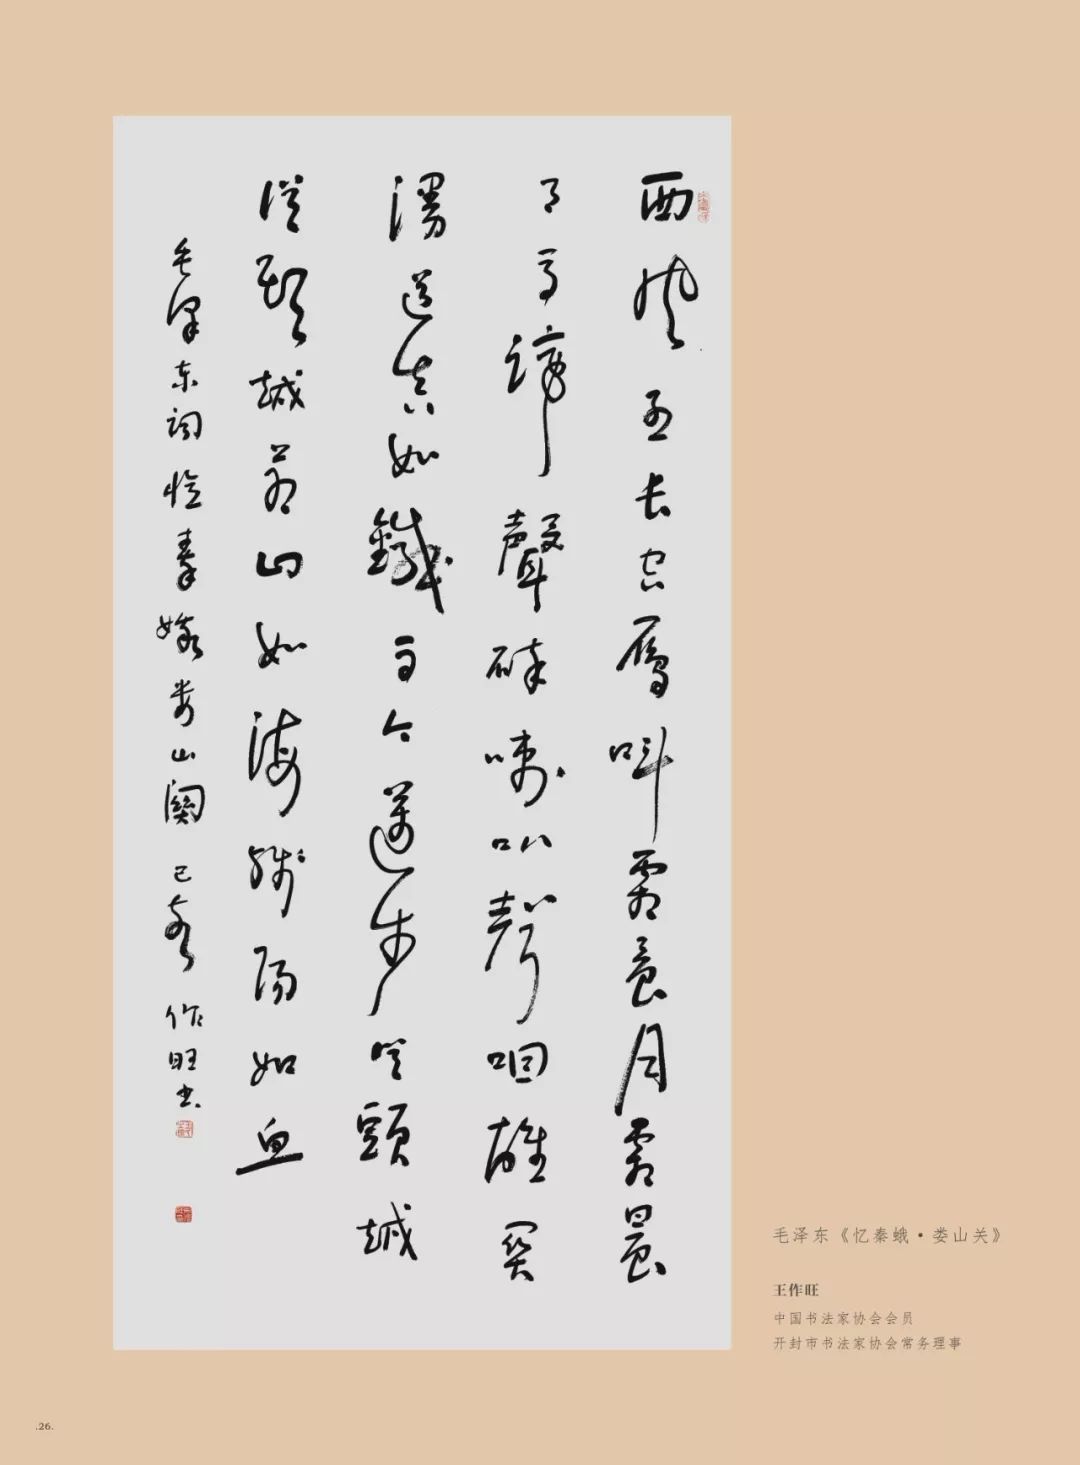 西風烈長空雁叫霜晨月霜晨
月馬蹄聲碎喇叭声咽雄關
漫道真如鐵而今邁步從頭越
從頭越蒼山如海殘陽如血
毛澤东詞憶秦娥娄山關 己亥 作旺书
毛泽东《忆秦蛾·娄山关》
王作旺
中国书法家协会会员
开封市书法家协会常务理事
.26.